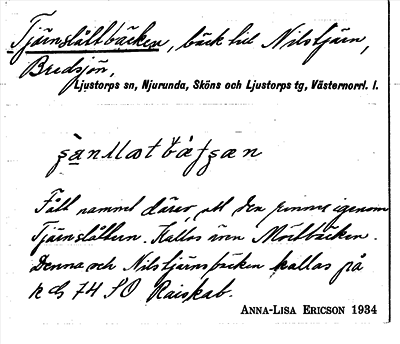 Tjärnslåttbäcken, bäck till Nilstjärn,
Bredsjön,
Ljustorps sn, Njurunda, Sköns och Ljustorps tg, Västernorrl. l.
Fått namnet därav, att den rinner igenom
Tjärnslåtten. Kallas även Mörtbäcken.
Denna och Nilstjärnsbäcken kallas på
k G 74 SO Raiskab.
ANNA-LISA ERICSON 1934